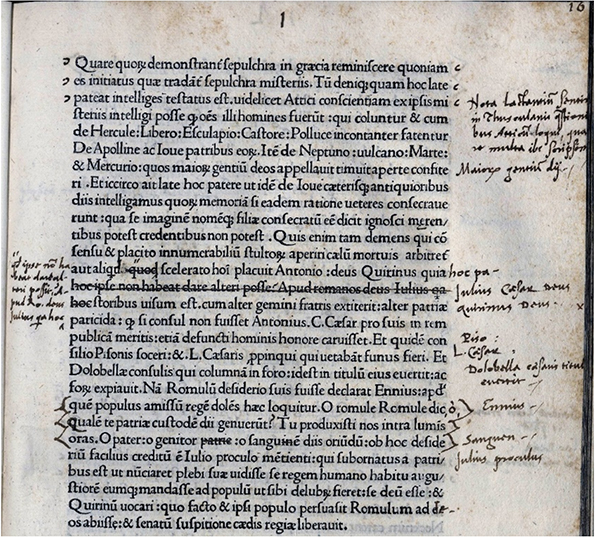 1
16
Quare quorum demonstrant̃ sepulchra in græcia reminiscere quoniam
es initiatus quæ tradãt̃ sepulchra misteriis. Tũ deniq; quam hoc late
pateat intelliges testatus est. uidelicet Attici conscientiam ex ipsis mi
steriis intelligi posse ꝙ oẽs illi homines fuerũt: qui coluntur & cum
de Hercule: Libero: Esculapio: Castore: Polluce incontanter fatentur
De Apolline ac Ioue patribus eoꝝ. Itẽ de Neptuno: uulcano: Marte:
& Mercurio: quos maioꝝ gentiũ deos appellauit timuit aperte confite
ri. Et iccirco ait late hoc patere ut idẽ de Ioue cæterisq; antiquioribus
diis intelligamus quoꝝ memoriã si eadem ratione ueteres consecraue
runt: qua se imaginẽ nomẽq; filiæ consecratũ eẽ dicit ignosci meren-
tibus potest credentibus non potest. Quis enim tam demens qui cõ
sensu & placito innumerabiliũ stultoꝝ aperiri cælũ mortuis arbitret̃
aut aliqd quod scelerato hoĩ placuit Antonio: deus Quirinus quia
hoc ipse non habeat dare alteri posse: Apud romanos deus Iulius qa
hoc storibus uisum est. cum alter gemini fratris extiterit: alter patriæ
paricida: ꝙ si consul non fuisset Antonius. C. Cæsar pro suis in rem
publicã meritis: etiã defuncti hominis honore caruisset. Et quidẽ con
silio P. sonis soceri: & L. Cæsaris, ꝓpinqui qui uetabãt funus fieri. Et
Dolobellæ consulis qui columnã in foro: idest in titulũ eius euertit: ac
foꝝ expiauit. Nã Romulũ desiderio suis fuisse declarat Ennius: apd'
quẽ populus amissũ regẽ dolẽs hæc loquitur. O romule Romule dic
quale te patriæ custodẽ dii genuerũt? Tu produxisti nos intra lumis
oras. O pater: o genitor patrie: o sanguinẽ diis oriũdũ: ob hoc deside
riũ facilius creditũ ẽ Iulio proculo mẽtienti: qui subornatus a patri-
bus est ut nũciaret plebi suæ uidisse se regem humano habitu augu-
stiorẽ eumq; mandasse ad populũ ut sibi delubꝝ fieret: se deũ esse: &
Quirinũ uocari: quo facto & ipsi populo persuasit Romulum ad de-
os abiisse: & senatũ suspitione cædis regiæ liberauit.
Nota
in Thusculanis
Maioꝝ gentium dij.
hoc pa-
Iulius Cæsar Deus
quirinus Deus.
Piso:
L. Cæsar
Dolobella cæsaris
Ennius
Sanguen
Iulius proculus